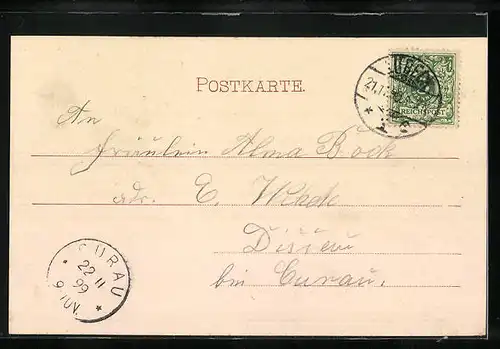 POSTKARTE.
REICHSPOST
An
Fräulein Alma Bock
adr. E. Wede
Dissau
bei Curau.
CURAU
22 11
99
9-10V.